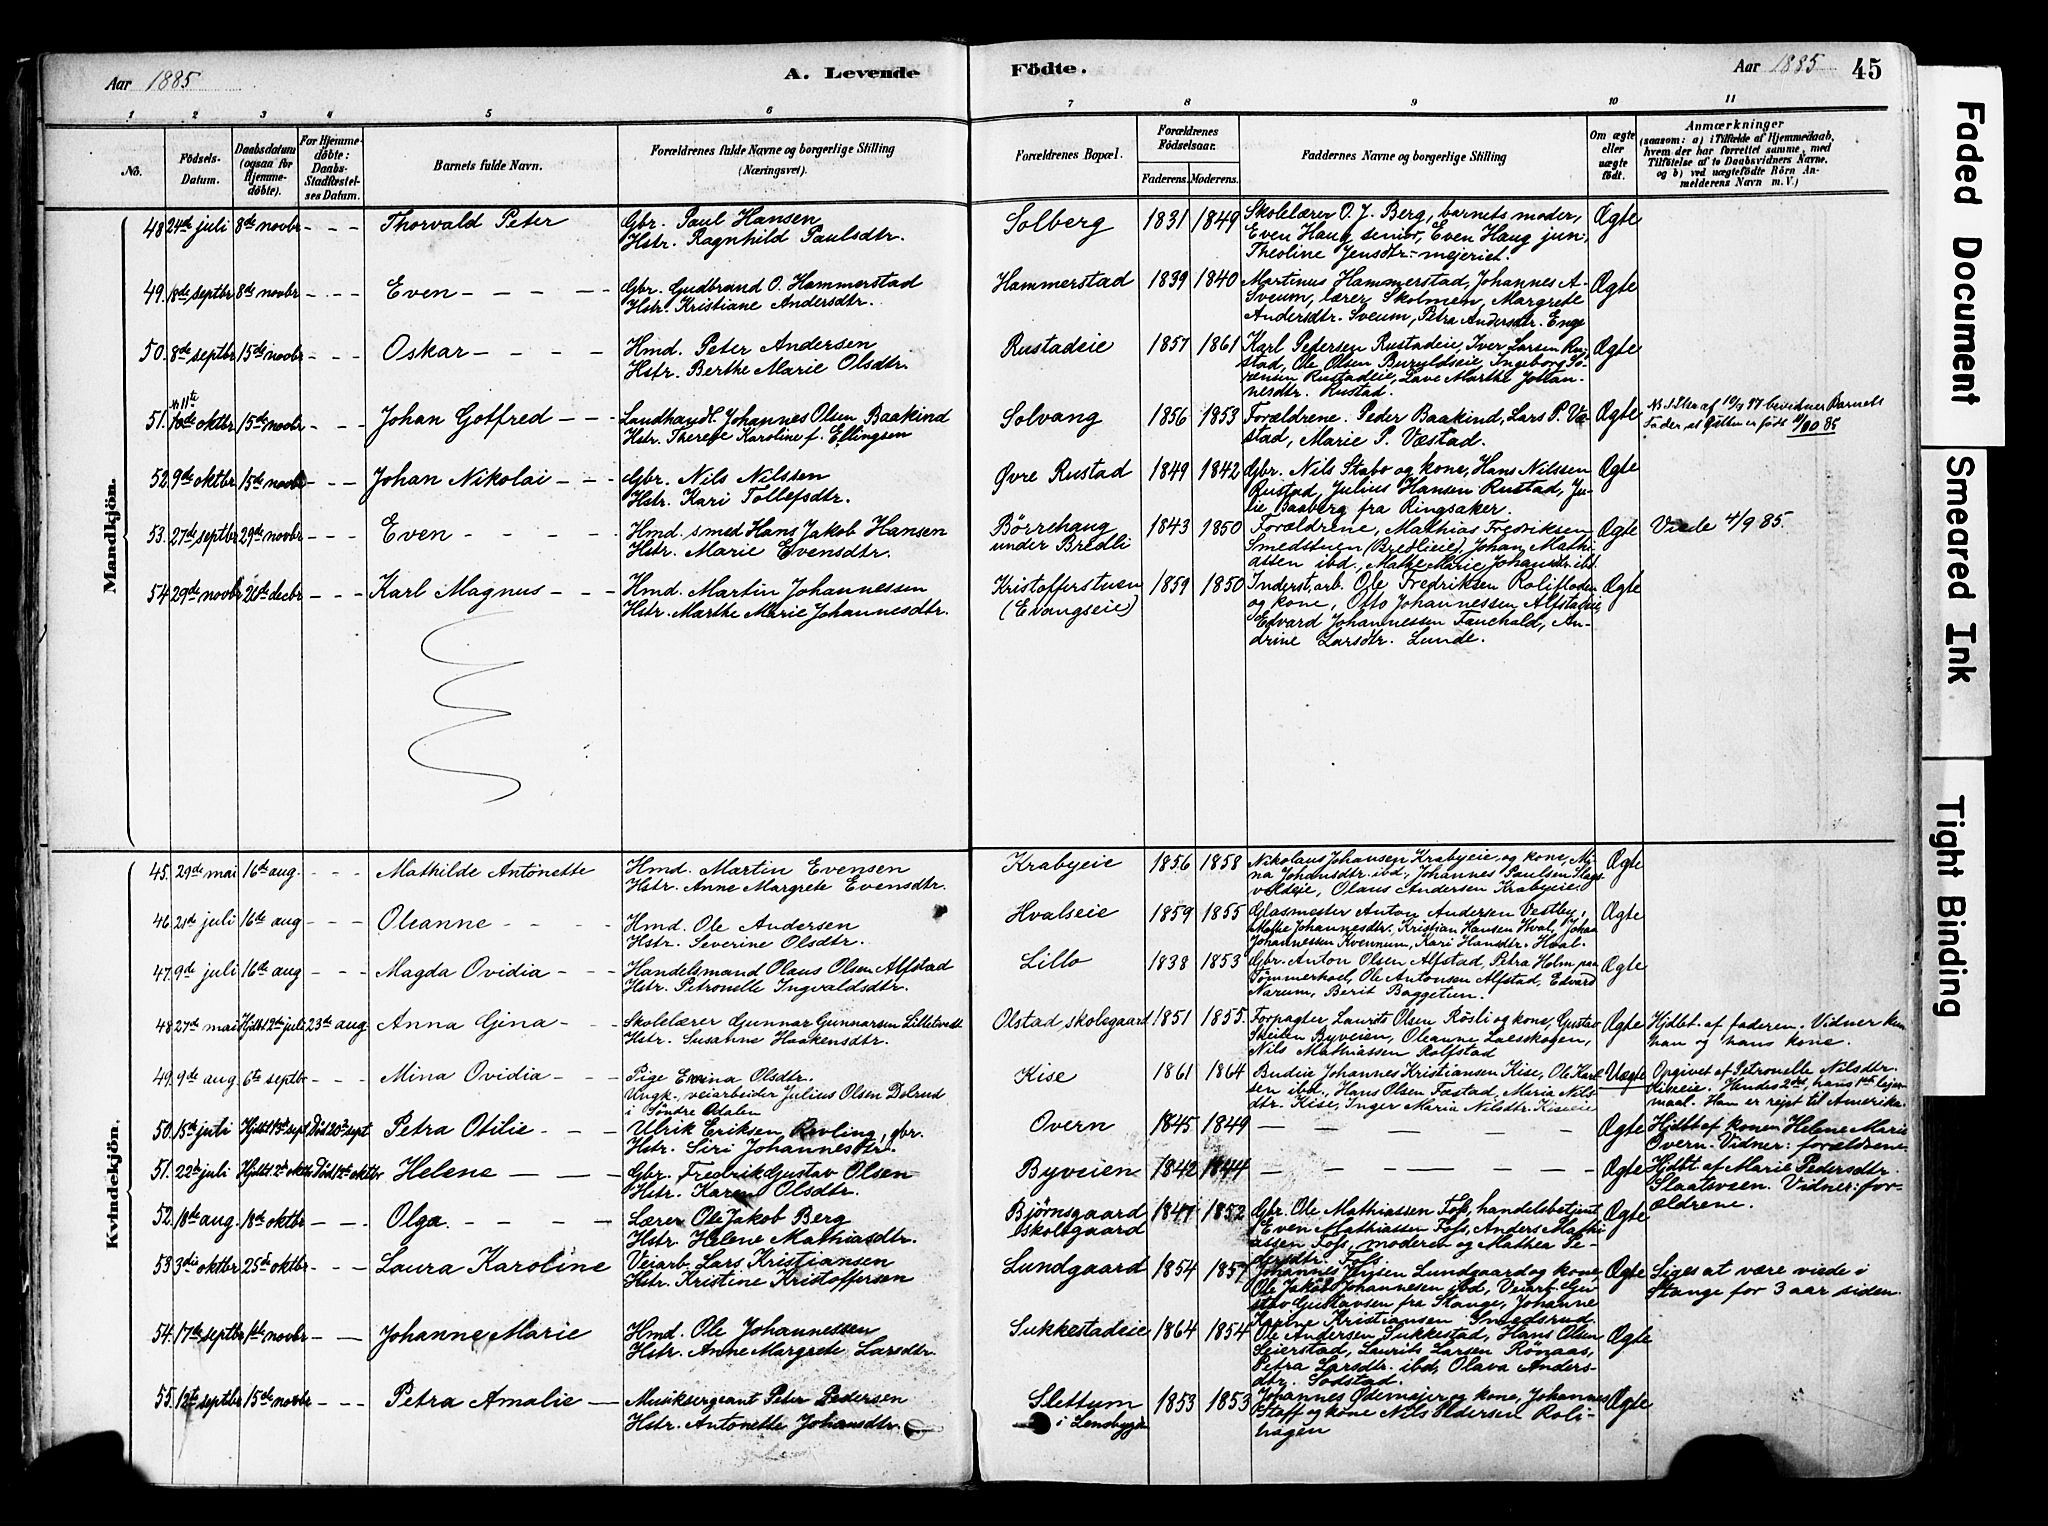 Aar 1885
A. Levende
Födte.
Aar 1885
45
1 2 3 4 5 6 7 8 9 10 11
No.
Födsels-Datum.
Daabsdatum (ogsaa for Hjemmedöbte).
For Hjemmedöbte: Daabs-Stadfæstelses Datum.
Barnets fulde Navn.
Forældrenes fulde Navne og borgerlige Stilling (Næringsvei).
Forældrenes Bopæl.
Forældrenes Födselsaar.
Faderens. Moderens.
Faddernes Navne og borgerlige Stilling
Om ægte eller uægte födt.
Anmærkninger
(saasom: a) i Tilfælde af Hjemmedaab, hvem der har forrettet samme, med Tilföielse af to Daabsvidners Navne, og b) ved uægtefödte Börn Anmelderens Navn m. V.)
Mandkjön.
48 24de juli 8de novbr - - - Thorvald Peter
Gbr. Paul Hansen
Hstr. Ragnhild Paulsdtr.
Solberg 1831 1849
Skolelærer O. J. Berg, barnets moder,
Even Haug senior, Even Haug jun.,
Theoline Jensdtr. - mejeriet.
Ægte
49. 18de septbr 8de novbr - - - Even - - - -
Gbr. Gudbrand O. Hammerstad
Hstr. Kristiane Andersdtr.
Hammerstad 1839 1840
Martinus Hammerstad, Johannes A.
Sveum, lærer Skolmen, Margrete
Andersdtr. Sveum, Petra Andersdtr. Enge
Ægte
50. 8de septbr 15de novbr - - - Oskar - - - -
Hmd. Peter Andersen
Hstr. Berthe Marie Olsdtr.
Rustadeie 1857 1861
Karl Pedersen Rustadeie, Iver Larsen Ru-
stad, Ole Olsen, Ingeborg Sö-
rensen Rustadeie, Marthe Johan-
nesdtr. Rustad.
Ægte
11te
51. 10de oktbr 15de novbr - - - Johan Gotfred - - -
Landhandl. Johannes Olsen Baakind
Hstr. Therese Karoline f. Ellingsen
Solvang 1856 1853
Forældrene. Peder Baakind, Lars P. Væ-
stad, Marie P. Væstad.
Ægte
bevidner Barnets
Fader at Gutten er født 11/10 85
52. 9de oktbr 15de novbr - - - Johan Nikolai - - -
Gbr. Nils Nilssen
Hstr. Kari Tollefsdtr.
Øvre Rustad 1849 1842
Gbr. Nils Stabo og kone, Hans Nilssen
Rustad, Julius Hansen Rustad, Ju-
lie Baaberg fra Ringsaker.
Ægte
53. 27de septbr 29de novbr - - - Even - - - -
Hmd. smed Hans Jakob Hansen
Hstr. Marie Evensdtr.
Börrehaug
under Bredli
1843 1850
Forældrene, Mathias Fredriksen
Smedstuen (Bredlieie), Johan Mathi-
assen ibd., Marie Johansdtr. ibd.
Ægte
Viede 4/9 85.
54 29de novbr 26de decbr - - - Karl Magnus - - -
Hmd. Martin Johannessen
Hstr. Marthe Marie Johannesdtr.
Kristofferstuen
(Evangseie)
1859 1850
Inderst. arb. Ole Fredriksen Rolifloden
og kone, Otto Johannessen Alfstadeie,
Edvard Johannessen Fauchald, An-
drine Larsdtr. Lunde.
Ægte
Kvindekjön.
45. 29de mai 16de aug. - - - Mathilde Antonette
Hmd. Martin Evensen
Hstr. Anne Margrete Evensdtr.
Krabyeie 1856 1858
Nikolaus Johansen Krabyeie og kone, Mi-
na Johansdtr. ibd., Johannes Paulsen Slags-
voldeie, Olaus Andersen Krabyeie.
Ægte
46 21de juli 16de aug - - - Oleanne - - -
Hmd. Ole Andersen
Hstr. Severine Olsdtr.
Hvalseie 1859 1855
Glasmester Anton Andersen Vestby,
Johannesdtr. Kristian Hansen Hval, Johan
Johannessen Kvernum, Kari Hansdtr. Hval.
Ægte
47. 9de juli 16de aug - - - Magda Ovidia - - -
Handelsmand Olaus Olsen Alfstad
Hstr. Petronelle Ingvaldsdtr.
Lillo 1838 1853
Gbr. Anton Olsen Alfstad, Petra Holm paa
Tömmerhoel, Ole Antonsen Alfstad, Edvard
Narum, Berit Baggetun.
Ægte
48 27de mai Hjdbt 12te juli 23de aug. Anna Gina - - -
Skolelærer Gunnar Gunnarsen Lilletvedt
Hstr. Susanne Haakensdtr.
Olstad skolegaard 1851 1855.
Forpagter Laurits Olsen Rösli og kone, Gustav
Skeilen Byveien, Oleanne Laeskogen,
Nils Mathiassen Rolfstad
Ægte
Hjdbt. af faderen. Vidner kun
han og hans kone.
49. 9de aug 6te septbr - - - Mina Ovidia - - -
Pige Emina Olsdtr.
Ungk. veiarbeider Julius Olsen Dolrud
i Söndre Odalen
Kise 1861 1864
Budeie Johannes Kristiansen Kise, Ole Karl-
sen ibd., Hans Olsen Fæstad, Maria Nils-
dtr. Kise, Inger Maria Nilsdtr. Kiseeie
Uægte
Opgivet af Petronelle Nilsdtr.
Kiseeie. Hendes 2det, hans 1ste leier-
maal. Han er rejst til Amerika.
50. 15de juli Hjdbt 13de sept Död 20de sept Petra Otilie - - -
Ulrik Eriksen Rovling, gbr.
Hstr. Siri Johannesdtr.
Overn 1845 1849 — — — — —
Ægte
Hjdbt af konen Helene Marie
Overn. Vidner: forældrene.
51. 22de juli Hjdbt 2de oktbr Död oktbr Helene — — —
Gbr. Fredrik Gustav Olsen
Hstr. Karen Olsdtr.
Byveien 1842 1844 — — — — —
Ægte
Hjdbt. af Marie Pedersdtr.
Slaatsveen. Vidner: for-
ældrene.
52. 18de aug 18de oktbr - - - Olga - - - -
Lærer Ole Jakob Berg
Hstr. Helene Mathiasdtr.
Bjørnsgaard
skolegaard
1847 1852
Gbr. Ole Mathiassen Fofs, handelsbetjent
Even Mathiassen Fofs, Anders Mathi-
assen Fofs, moderen og Mathea Pe-
dersdtr. Fofs
Ægte
53 3die oktbr 25de oktbr - - - Laura Karoline
Veiarb. Lars Kristiansen
Hstr. Kristine Kristoffersen
Lundgaard 1854 1857
Johannes Jensen Lundgaard og kone,
Ole Jakob Johannesen ibd, Veiarb. Gu-
stav Gustavsen fra Stange, Johanne
Karine Kristiansen Smedsrud.
Ægte
Siges at være viede i
Stange for 3 aar siden.
54. 17de septbr 1ste novbr - - Johanne Marie
Hmd. Ole Johannessen
Hstr. Anne Margrete Larsdtr.
Sukkestadeie 1864 1854
Ole Andersen Sukkestad, Hans Olsen
Seierstad, Laurits Larsen Rönaas,
Petra Larsdtr. ibd, Olava Anders-
dtr. Sodstad.
Ægte
55. 12te septbr 15de novbr - - - Petra Amalie —
Musiksergeant Peter Pedersen
Hstr. Antonette Johansdtr.
Slettum
i Lensbygden
1853 1853
Johannes Odemajer og kone, Johannes
Staff og kone Nils Roli-
hagen
Ægte
Faded Document
Smeared Ink
Tight Binding